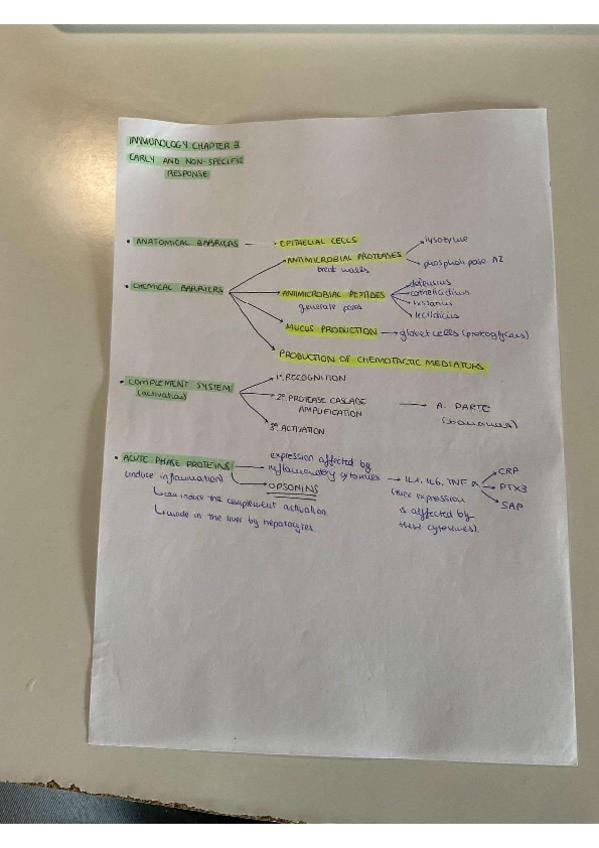 INMUNOLOGY CHAPTER 3
EARLY AND NON-SPECIFIC
RESPONSE
• ANATOMICAL BARRIERS → EPITELIAL CELLS
• CHEMICAL BARRIERS
ANTIMICROBIAL PROTEASES
walls
lysozyme
phospholipase A2
ANTIMICROBIAL PEPTIDES
generate pores
defensins
cathelicidins
histanins
lectidicins
MUCUS PRODUCTION → globet cells (proteoglycans)
PRODUCTION OF CHEMOTACTIC MEDIATORS
• COMPLEMENT SYSTEM
(activation)
1º. RECOGNITION
2º. PROTEASE CASCADE
AMPLIFICATION
3º. ACTIVATION
→ A. PARTE
• ACUTE PHASE PROTEINS
(induce inflammation)
↳ can induce the complement activation
↳ made in the liver by hepatocytes.
expression affected by
inflammatory cytokines
OPSONINS
→ IL1, IL6, TNF α
(their expression
is affected by
these cytokines).
CRP
PTX3
SAP